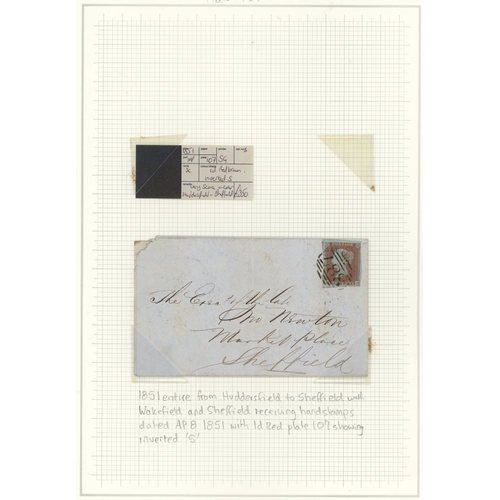 1851
107
SG
1d Red brown
inverted S
The Exors of the late
Jno Newton
Market Place
Sheffield
1851 entire from Huddersfield to Sheffield with
Wakefield and Sheffield receiving handstamps
dated AP 8 1851 with 1d Red plate 107 showing
inverted 'S'